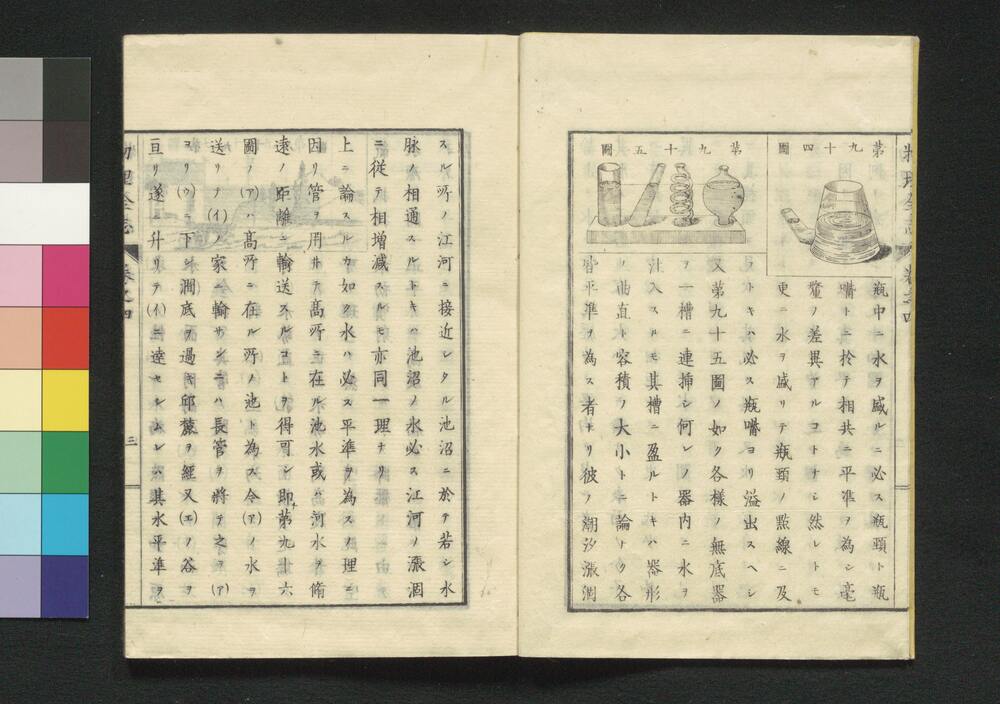 物理全志
卷之四
第九十四圖
第九十五圖
瓶中ニ水ヲ盛ルニ必ス瓶頸ト瓶
嘴トニ於テ相共ニ平準ヲ為シ毫
釐ノ差異アルコトナシ然レトモ
更ニ水ヲ盛リテ瓶頸ノ點線ニ及
フトキハ必ス瓶嘴ヨリ溢出スヘシ
又第九十五圖ノ如ク各樣ノ無底器
ヲ一槽ニ連揷シ何レノ器内ニ水ヲ
注入スルモ其槽ニ盈ルトキハ器形
ノ曲直ト容積ノ大小トニ論ナク各
皆平準ヲ為ス者ナリ彼ノ潮汐漲涸
スル所ノ江河ニ接近シタル池沼ニ於テ若シ水
脉ノ相通スルトキハ池沼ノ水必ス江河ノ漲涸
ニ從テ相增減スルモ亦同一理ナリ
上ニ論スルカ如ク水ハ必ス平準ヲ為スノ理ニ
因リ管ヲ用ヰテ髙所ニ在ル池水或ハ河水ヲ脩
遠ノ距離ニ輸送スルコトヲ得可シ即チ第九十六
圖ノ(ア)ハ髙所ニ在ル所ノ池ト為ス今(ア)ノ水ヲ
送リテ(イ)ノ家ニ輸サンニハ長管ヲ將テ之ヲ(ア)
ヨリ(ウ)ニ下シ澗底ヲ過キ邱麓ヲ經又(エ)ノ谷ヲ
亘リ遂ニ升リテ(イ)ニ達セシムレハ其水平準ヲ
物理全志
卷之四
三